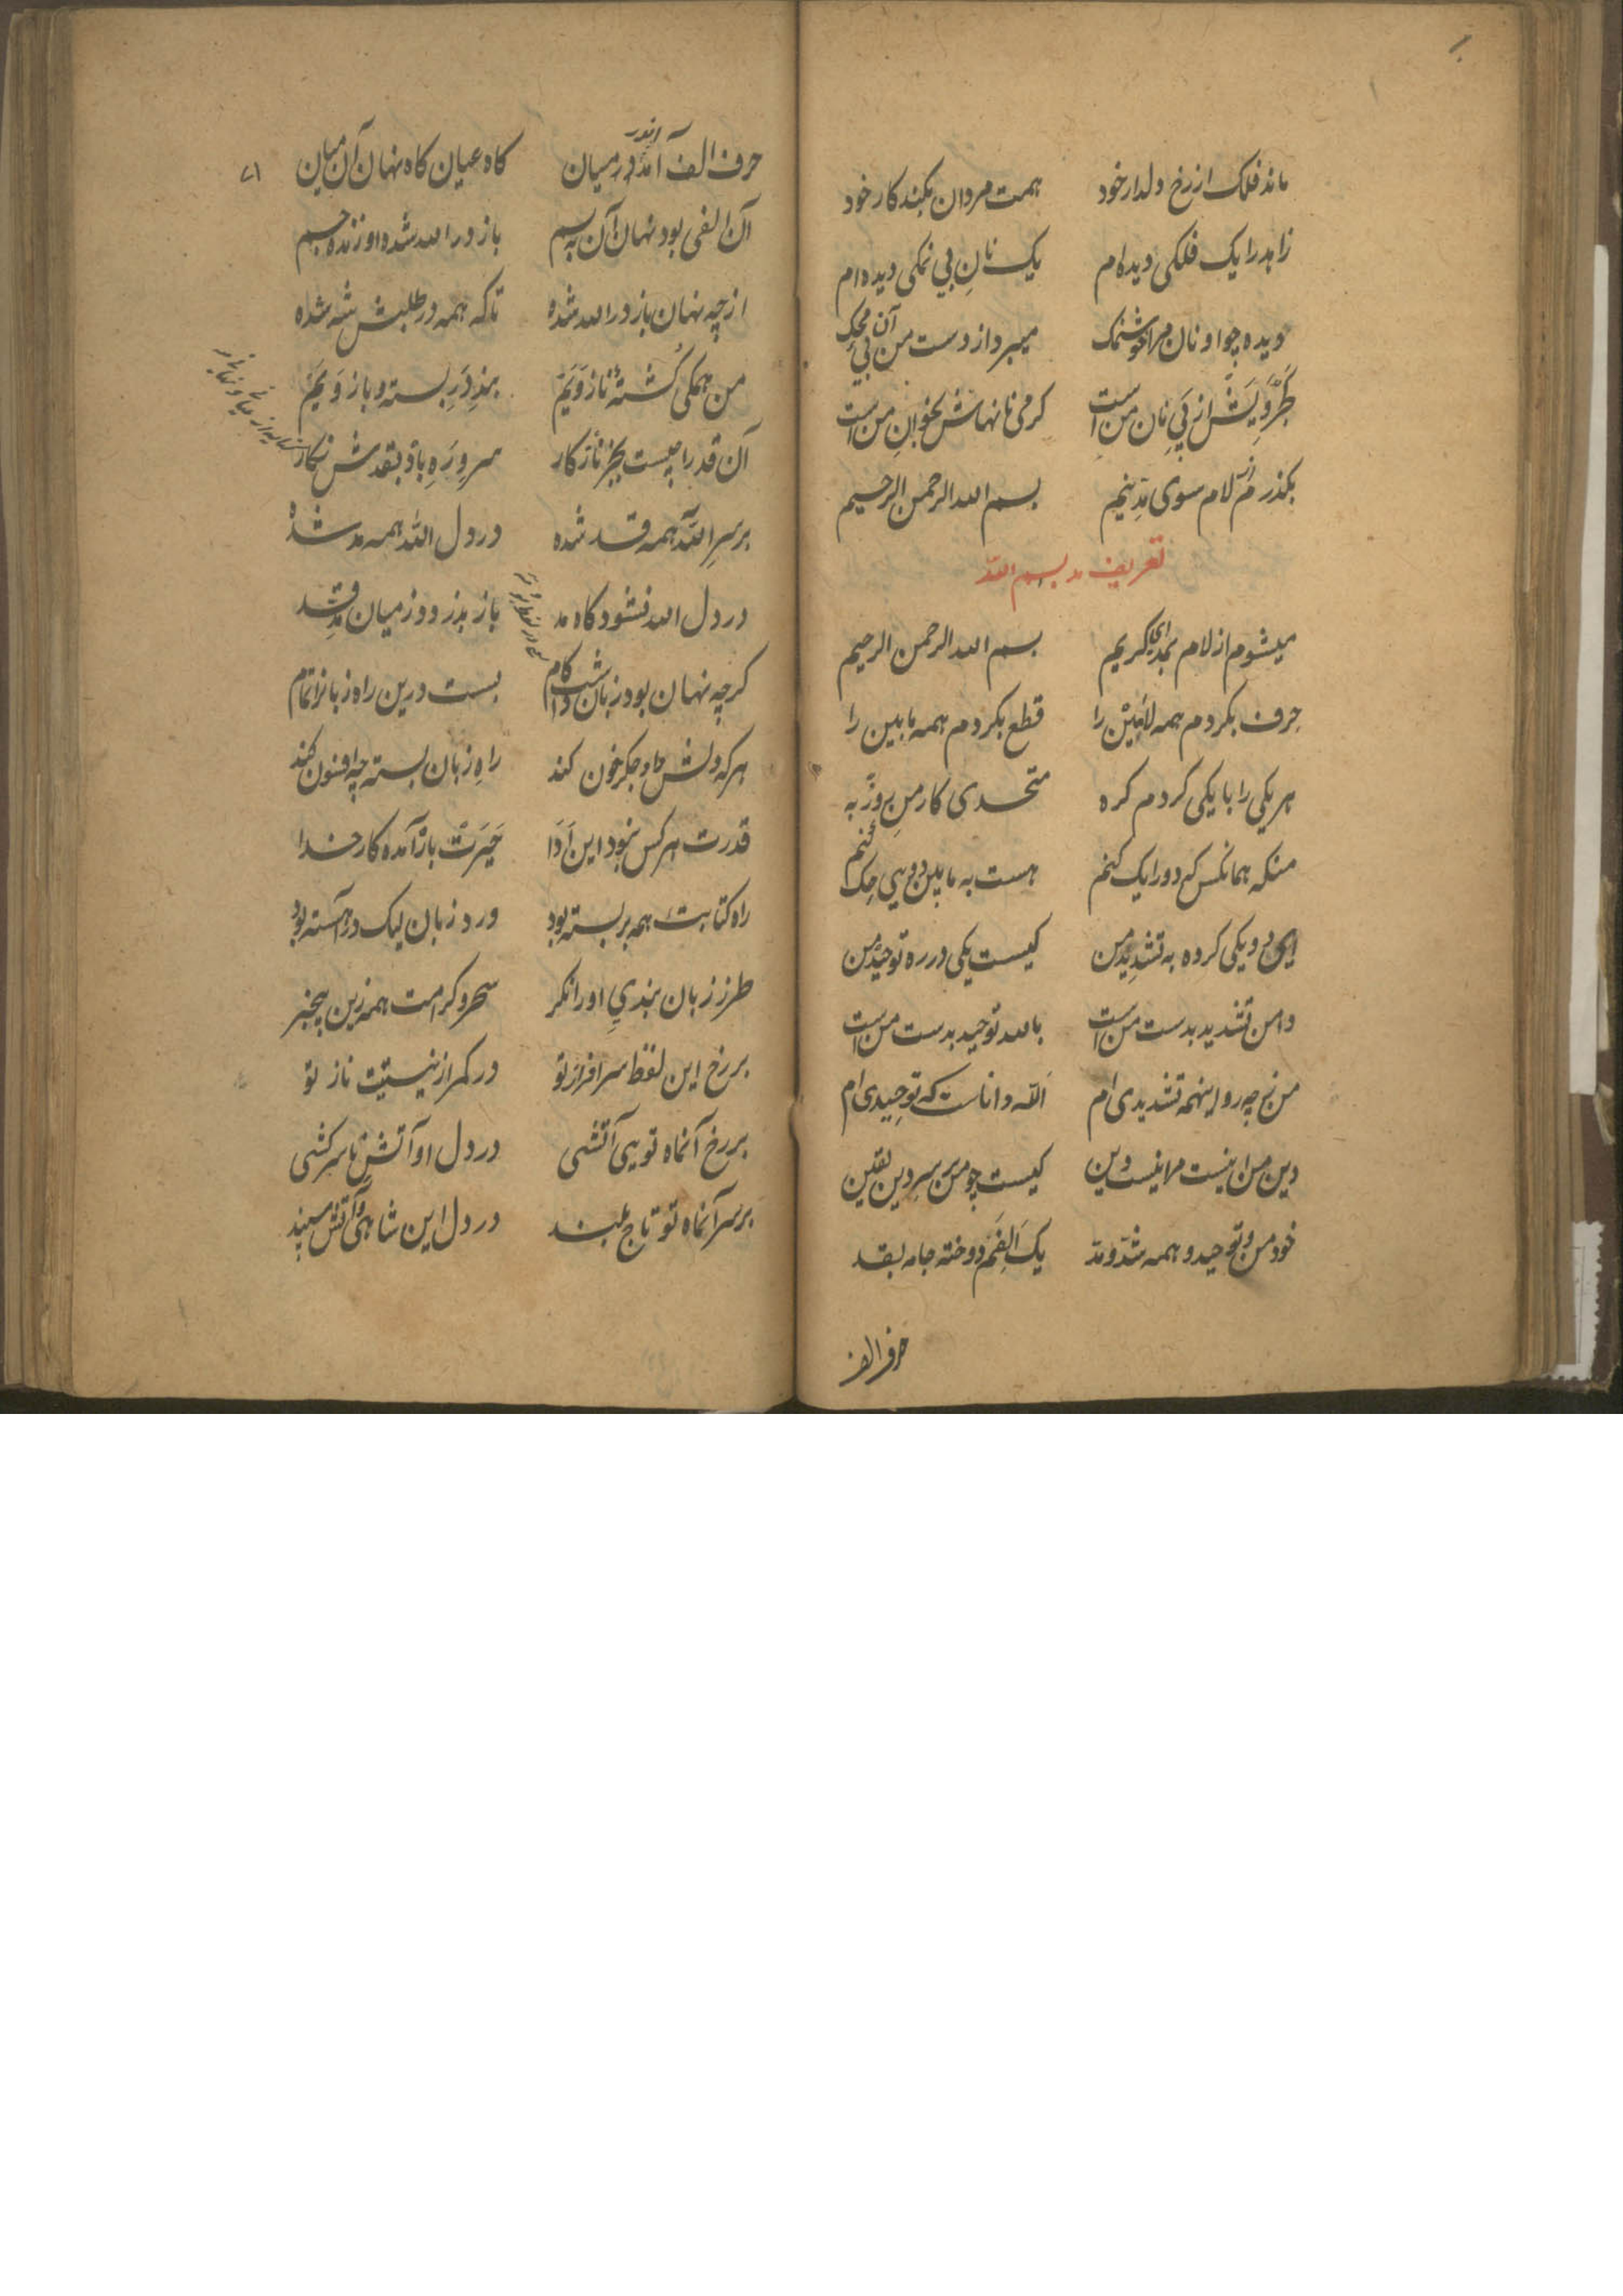 ماند فلک از رخ دلدار خود همت مردان بکند کار خود
زاهد را یک فلکی دیده‌ام یک نانِ بی نمکی دیده‌ام
دیده چو او نان مرا خوشنمک میبرد از دست من آن بی محک
از پی نان من است کرمی نانهاش بخوانِ من است
بگذر از لام سوی مدّ نیم بسم الله الرحمن الرحیم
تعریف مد بسم الله
میشوم از لام بمد ای کریم بسم الله الرحمن الرحیم
حرف بکردم همه لابین را قطع بکردم همه مابین را
هر یکی را با یکی کردم کره متحدی کار من
منکه همانکس که دو را یک کنم هست به مابین دویی
ای دو یکی کرده به تشدید من کیست یکی در ره توحید من
دامن تشدید بدست من است بالله توحید بدست من است
من ز چه رو اینهمه تشدیدی ام الله داناست که توحیدی ام
دین من اینست مرا نیست دین کیست چو من بر سر دین یقین
خود من و توحید و همه شدّ و مدّ یک اَلِفَم دوخته جامه بقد
حرف الف
حرف الف آمد اندر میان کاه عیان کاه نهان آن میان
۷۱
آن الفی بود نهان آن به بسم باز در الله شده او زنده جسم
از چه نهان باز در الله شده تا که همه در طلبش شه شده
من همکی کُشتهٔ ناز وَیَم بند دَرِ بسته و باز وَیَم
آن قد را چیست بجز ناز کار سرو بقدش نکار
بر سرِ الله همه قد شده در دل الله همه مد شده
در دل الله نشود کاه مد باز بدزدد ز میان مدّ قد
کرچه نهان بود زبان کام بست درین راه زبانرا تمام
هر که دلش جا و جکر خون کند راهِ زبان بسته چه افسون کند
قدرت هر کس نبود این اَدَا حَیرَت باز آمده کار خدا
راه کتابت همه بر بسته بود ورد زبان لیک در آهسته بود
طرز زبان بندیِ او را نکر سحر و کرامت همه زین بیخبر
بر رخ این لفظ سرافراز تو در کمر از نیستیت ناز تو
بر رخ آنماه تویی آتشی در دل او آتش با سرکشی
بر سر آنماه تو تاج بلند در دل این شاهی و آتش سپند